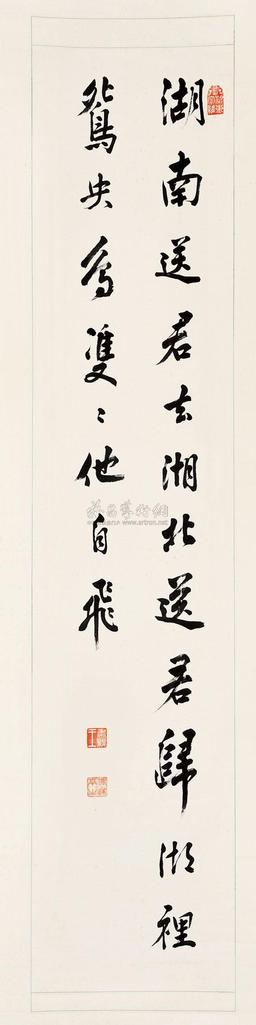 湖南送君去湖北送君歸湖裡
鴛央鳥雙〻他自飛
雅昌藝術網
www.artron.net